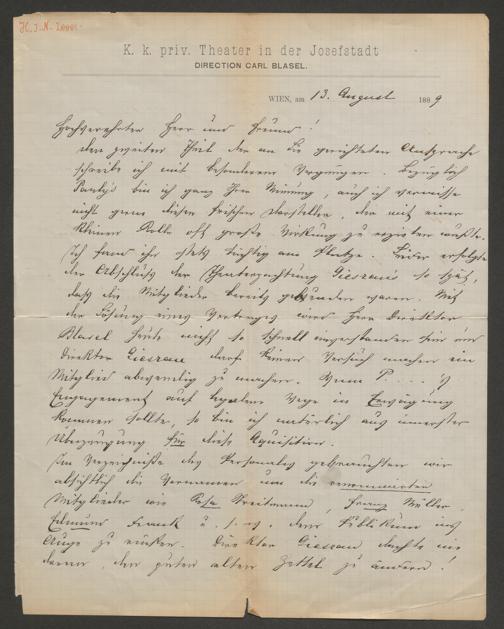 K. k. priv. Theater in der Josefstadt
DIRECTION CARL BLASEL.
WIEN, am 13. August 1889
Hochverehrter Herr und Freund!
Den zweiten Theil der an Sie gerichteten Ansprache
schreibe ich mit besonderem Vergnügen. Bezüglich
bin ich ganz Ihrer Meinung, auch ich vermisse
nicht gern diesen frischen Darsteller, der mit einer
kleinen Rolle oft große Wirkung zu erzielen wußte.
Ich fand ihn stets tüchtig am Platze. Leider erfolgte
der Abschluss der Theaterpachtung Giesrau's so spät,
daß die Mitglieder bereits gebunden waren. Mit
der Lösung eines Vertrages wird Herr Direktor
Blasel heute nicht so schnell einverstanden sein und
Direktor Giesrau darf keinen Versuch machen ein
Mitglied abwendig zu machen. Wenn P. . . . 's
Engagement auf legalem Wege in Erwägung
kommen sollte, so bin ich natürlich aus innerster
Überzeugung für diese Aquisition.
Im Verzeichniße des Personales gebrauchten wir
absichtlich die Vornamen um die renommirten
Mitglieder wie Rosa Streitmann, Franz Müller
Edmund Frank u. s. w. dem Publikum ins
Auge zu rücken. Direktor Giesrau dachte nie
daran, den guten alten Zettel zu ändern!